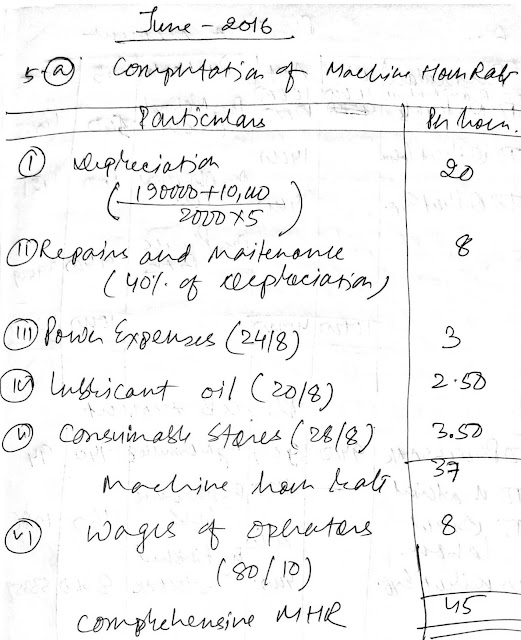 June - 2016
5 (a) Computation of Machine Hour Rate
Particulars Per hour.
(I) Depreciation 20
(190000+10,000 / 2000×5)
(II) Repairs and Maitenance 8
(40% of Depreciation)
(III) Power Expenses (24/8) 3
(IV) Lubricant oil (20/8) 2.50
(V) Consumable Stores (28/8) 3.50
Machine hour Rate 37
(VI) Wages of operators 8
(80/10)
Comprehensive MHR 45